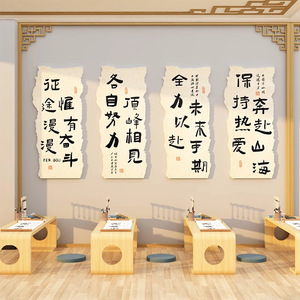 征途漫漫
惟有奋斗
FEN DOU
各自努力
顶峰相見
全力以赴
未来可期
保持热爱
奔赴山海